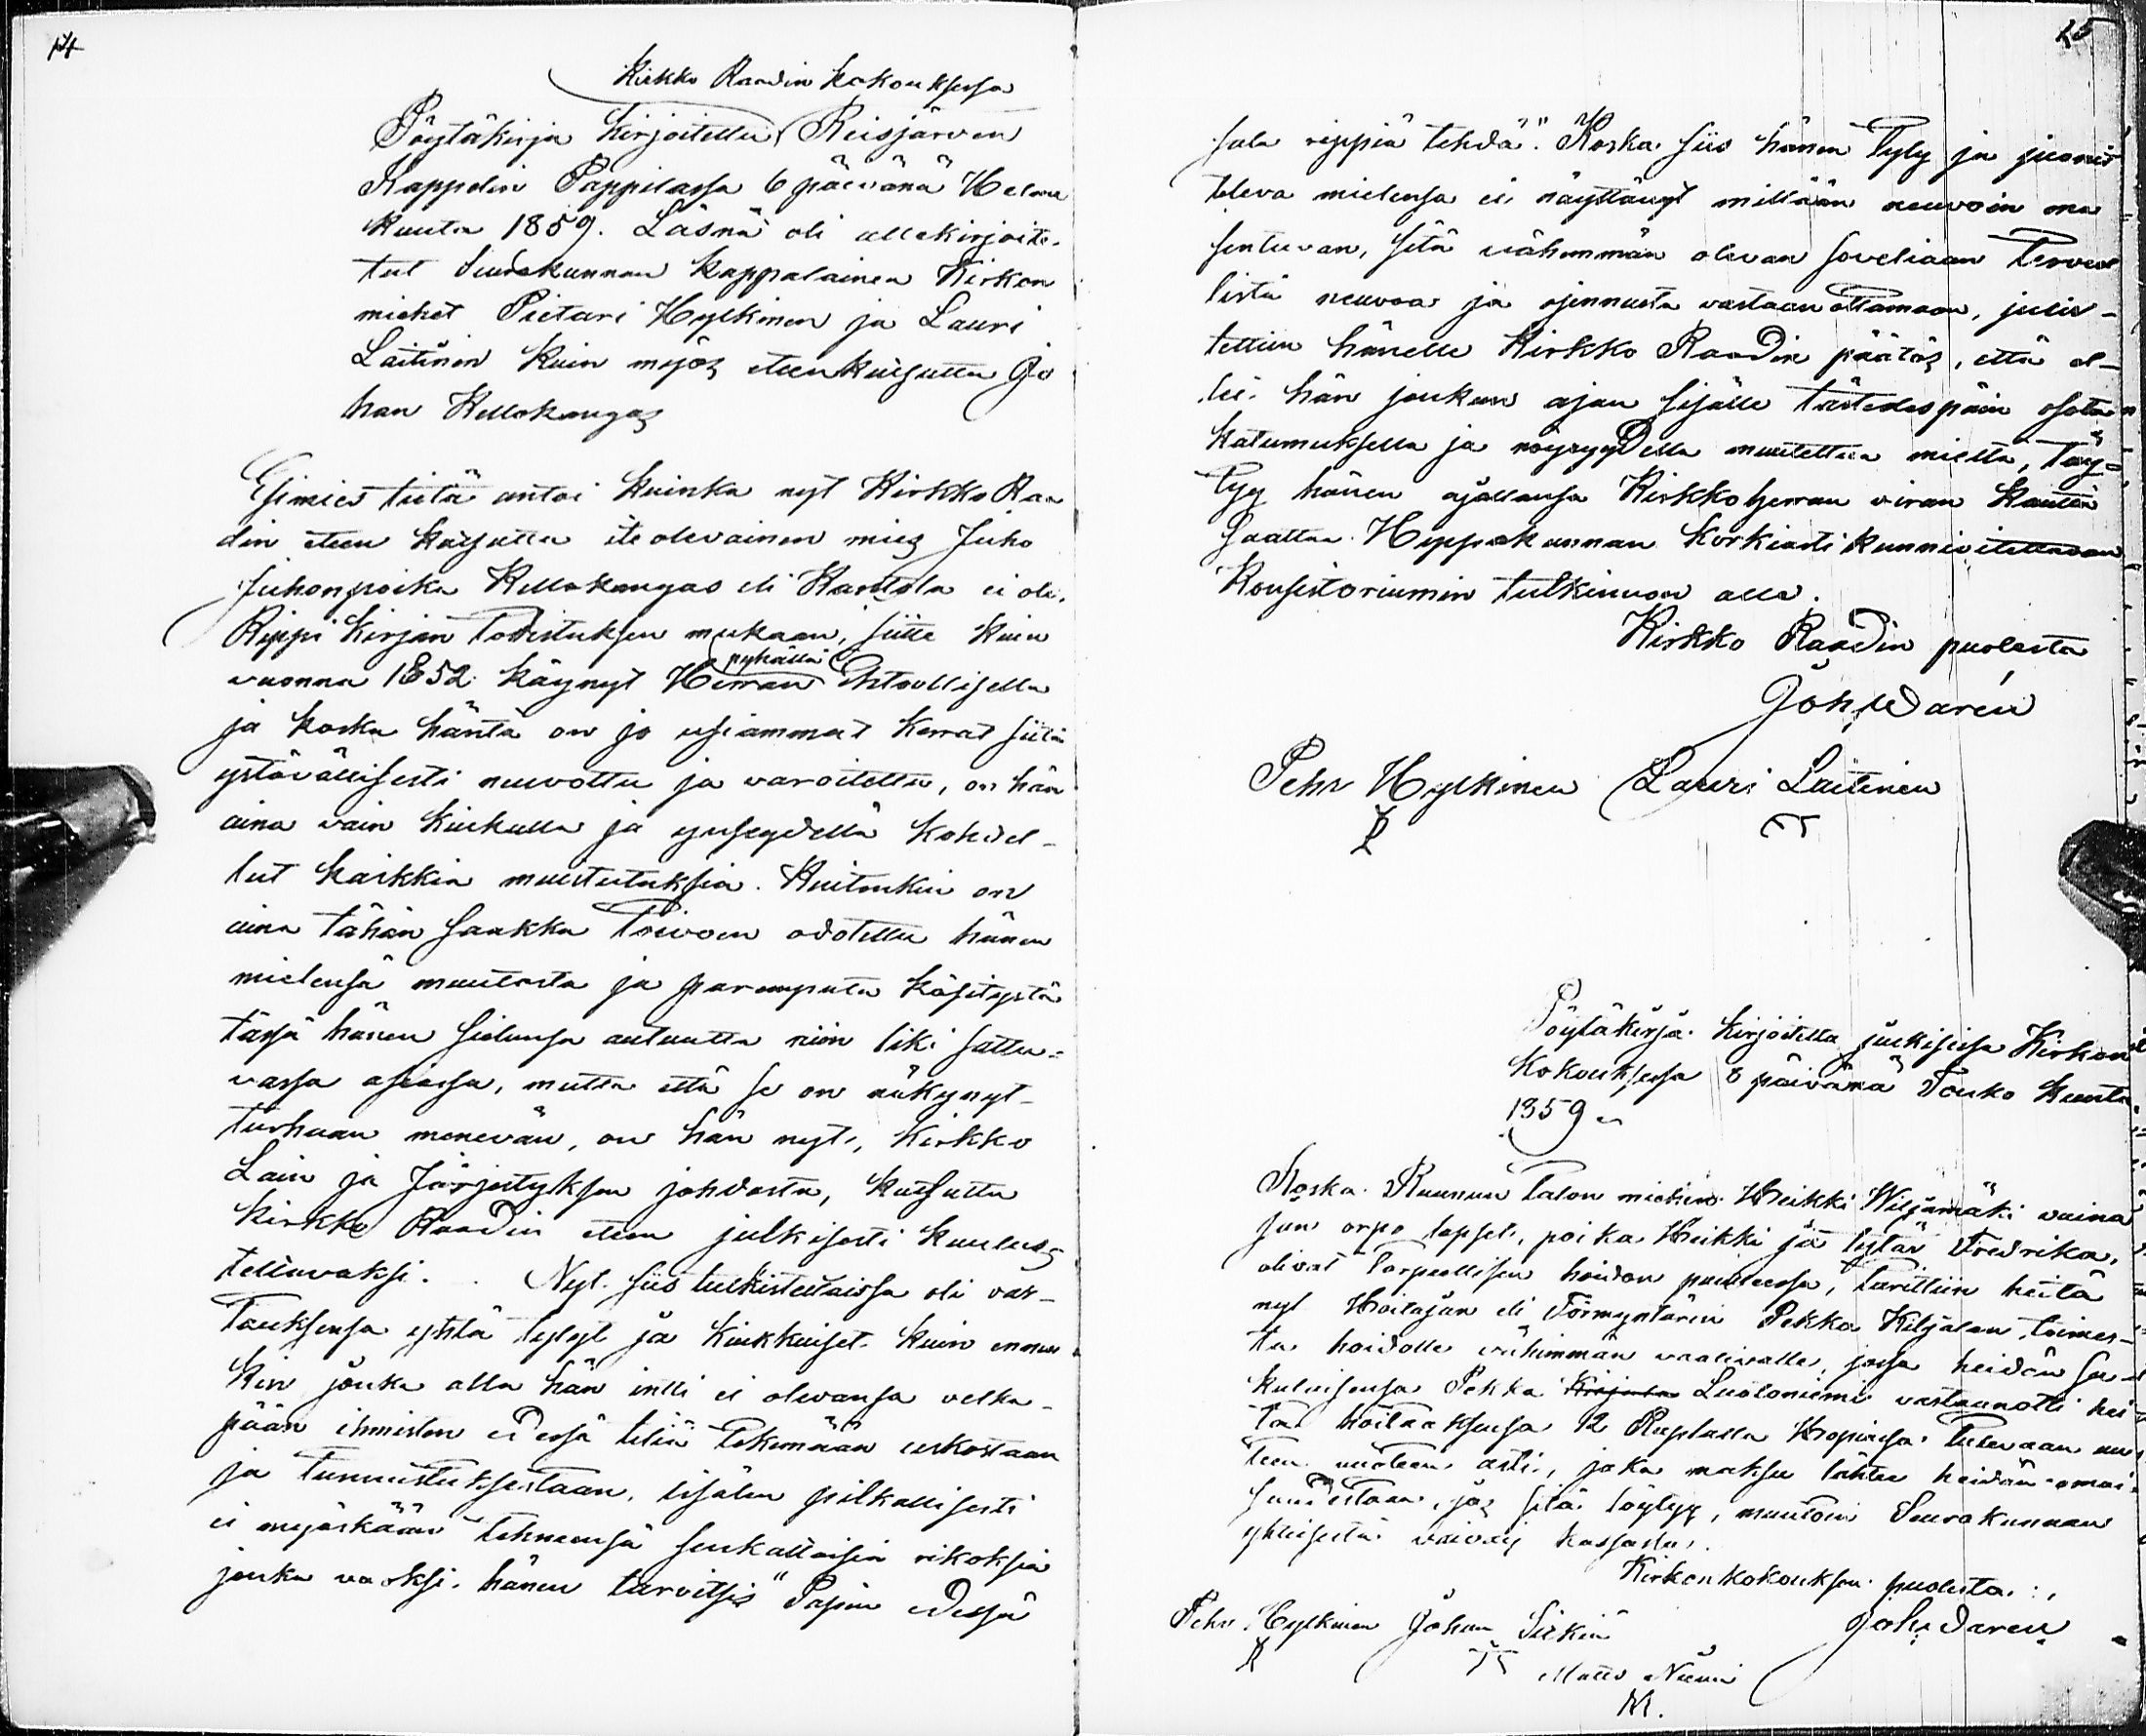 14
Kirkko Raadin kokouksessa
Pöytäkirja kirjoitettu Reisjärven
Kappelin Pappilassa 6 päivänä Helme
kuuta 1859. Läsnä oli allekirjoite-
tut Seurakunnan kappalainen Kirkon
miehet Pietari Hylkinen ja Lauri
Laitinen kuin myös eteenkutsuttu Jo
han Kellokangas
Esimies tietä antoi kuinka nyt Kirkko Raa
din eteen kutsuttu itsolevainen mies Juho
Juhonpoika Kellokangas eli Kantola ei ole,
Rippi Kirjan Todistuksen mukaan, siitä kuin
pyhällä
vuonna 1852 käynyt Herran Ehtoollisella
ja koska häntä on jo usiammat kerrat siitä
ystävällisesti neuvottu ja varoitettu, on hän
aina vain kiukulla ja ynseydellä kohdel-
lut kaikkia muistutuksia. Kuitenkin on
aina tähän saakka Toivoen odotettu hänen
mielensä muutosta ja parempata käsitystä
tässä hänen sielunsa autuutta niin liki sattu-
vassa asiassa, mutta että se on näkynyt
turhaan menevän, on hän nyt, Kirkko
Lain ja Järjestyksen johdosta, kutsuttu
Kirkko Raadin eteen julkisesti kuulus
teltavaksi. Nyt siis tutkisteltaissa oli vas-
tauksensa yhtä tylyt ja kiukkuiset kuin ennen
kin jonka alla hän intti ei olevansa velka-
pään ihmisten edessä tiliä tekemään uskostaan
ja tunnustuksestaan, lisäten pilkallisesti
ei myöskään tehneensä senkaltaisia rikoksia
jonka vuoksi hänen tarvitsis "Papin edessä
15
sala rippiä tehdä". Koska siis hänen Tyly ja juonit
televa mielensä ei näyttänyt millään neuvoin ma
sentuvan, sitä vähemmän olevan soveliaan Tervee
listä neuvoa ja ojennusta vastaan ottamaan, julis-
tettiin hänelle Kirkko Raadin päätös, että el-
lei hän jonkun ajan sisälle tästedespäin osota
katumuksella ja nöyryydellä muutettua mieltä, Täy-
tyy hänen ajallansa Kirkkoherran viran kautta
saattaa Hippakunnan Korkiasti kunnioitettavan
Konsistoriumin tutkinnon alle.
Kirkko Raadin puolesta
Joh. Daren
Pehr Hylkinen Lauri Laitinen
Pöytäkirja kirjoitettu julkisessa Kirkon
kokouksessa 8 päivänä Touko kuuta
1859
Koska Ruunun Talon miehen Heikki Wiljamäki vaina
jan orpo lapset, poika Heikki ja tytär Fredrika,
olivat Tarpeellisen hoidon puutteessa, Tarittiin heitä
nyt Hoitajan eli Förmyntärin Pekka Kiljalan toimes-
ta hoidolle vähimmän vaativalle, jossa heidän su-
kulaisensa Pekka Luotoniemi vastaanotti hei
tä hoitaaksensa 12 Ruplalla Hopiassa Tulevaan uu
teen vuoteen asti, joka maksu lähtee heidän omai-
suudestaan, jos sitä löytyy, muutoin Seurakunnan
yhteisestä vaivais kassasta.
Kirkonkokouksen puolesta:
Joh. Daren
Pehr Hylkinen Johan Sirkiä
Matts Niemi
M.